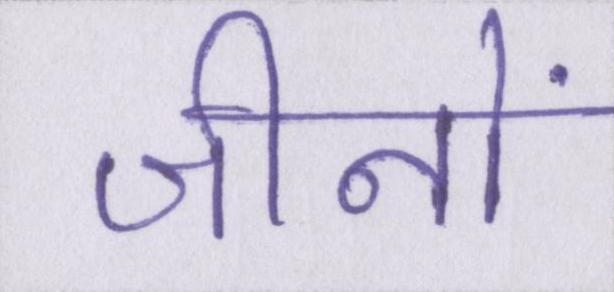 जीनों